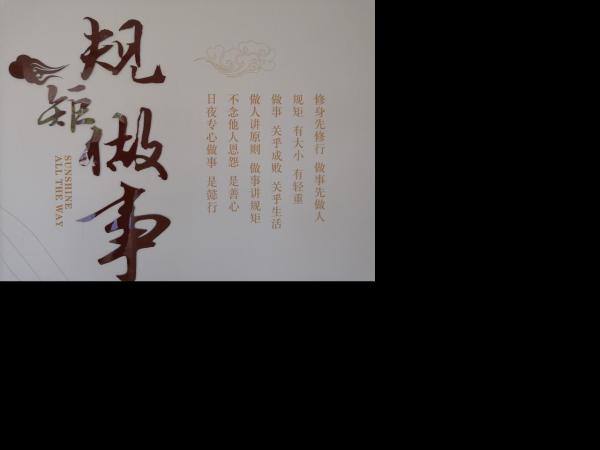 规矩做事
SUNSHINE
ALL THE WAY
修身先修行 做事先做人
规矩 有大小 有轻重
做事 关乎成败 关乎生活
做人讲原则 做事讲规矩
不念他人恩怨 是善心
日夜专心做事 是懿行